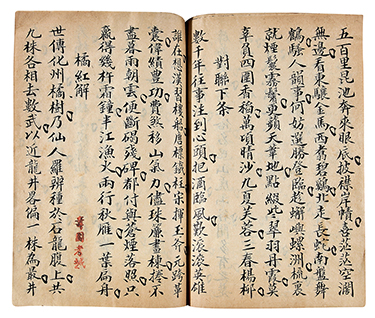 五百里昆池奔來眼底披襟岸幘喜茫茫空濶
無邊看東驤金馬西翥碧鷄北走長蛇南盤舞
鶴騷人韻事何妨選勝登臨趁蠏嶼螺洲梳裹
就煙鬟霧鬢更蘋天葦地點綴些翠羽丹霞莫
辜負四圍香稻萬頃晴沙九夏芙蓉三春楊柳
對聯下条
數千年往事注到心頭把酒臨風歎滾滾英雄
誰在想漢習樓船唐標鐵柱宋揮玉斧元跨革
囊偉績豐功費煞移山氣力儘珠簾畫棟捲不
盡暮雨朝雲便斷碣殘碑都付與蒼煙落照只
贏得幾杵霜鐘半江漁火兩行秋雁一葉扁舟
橘紅解
世傳化州橘樹乃仙人羅辨種於石龍腹上共
九株各相去數武以近龍井畧偏一株為最井